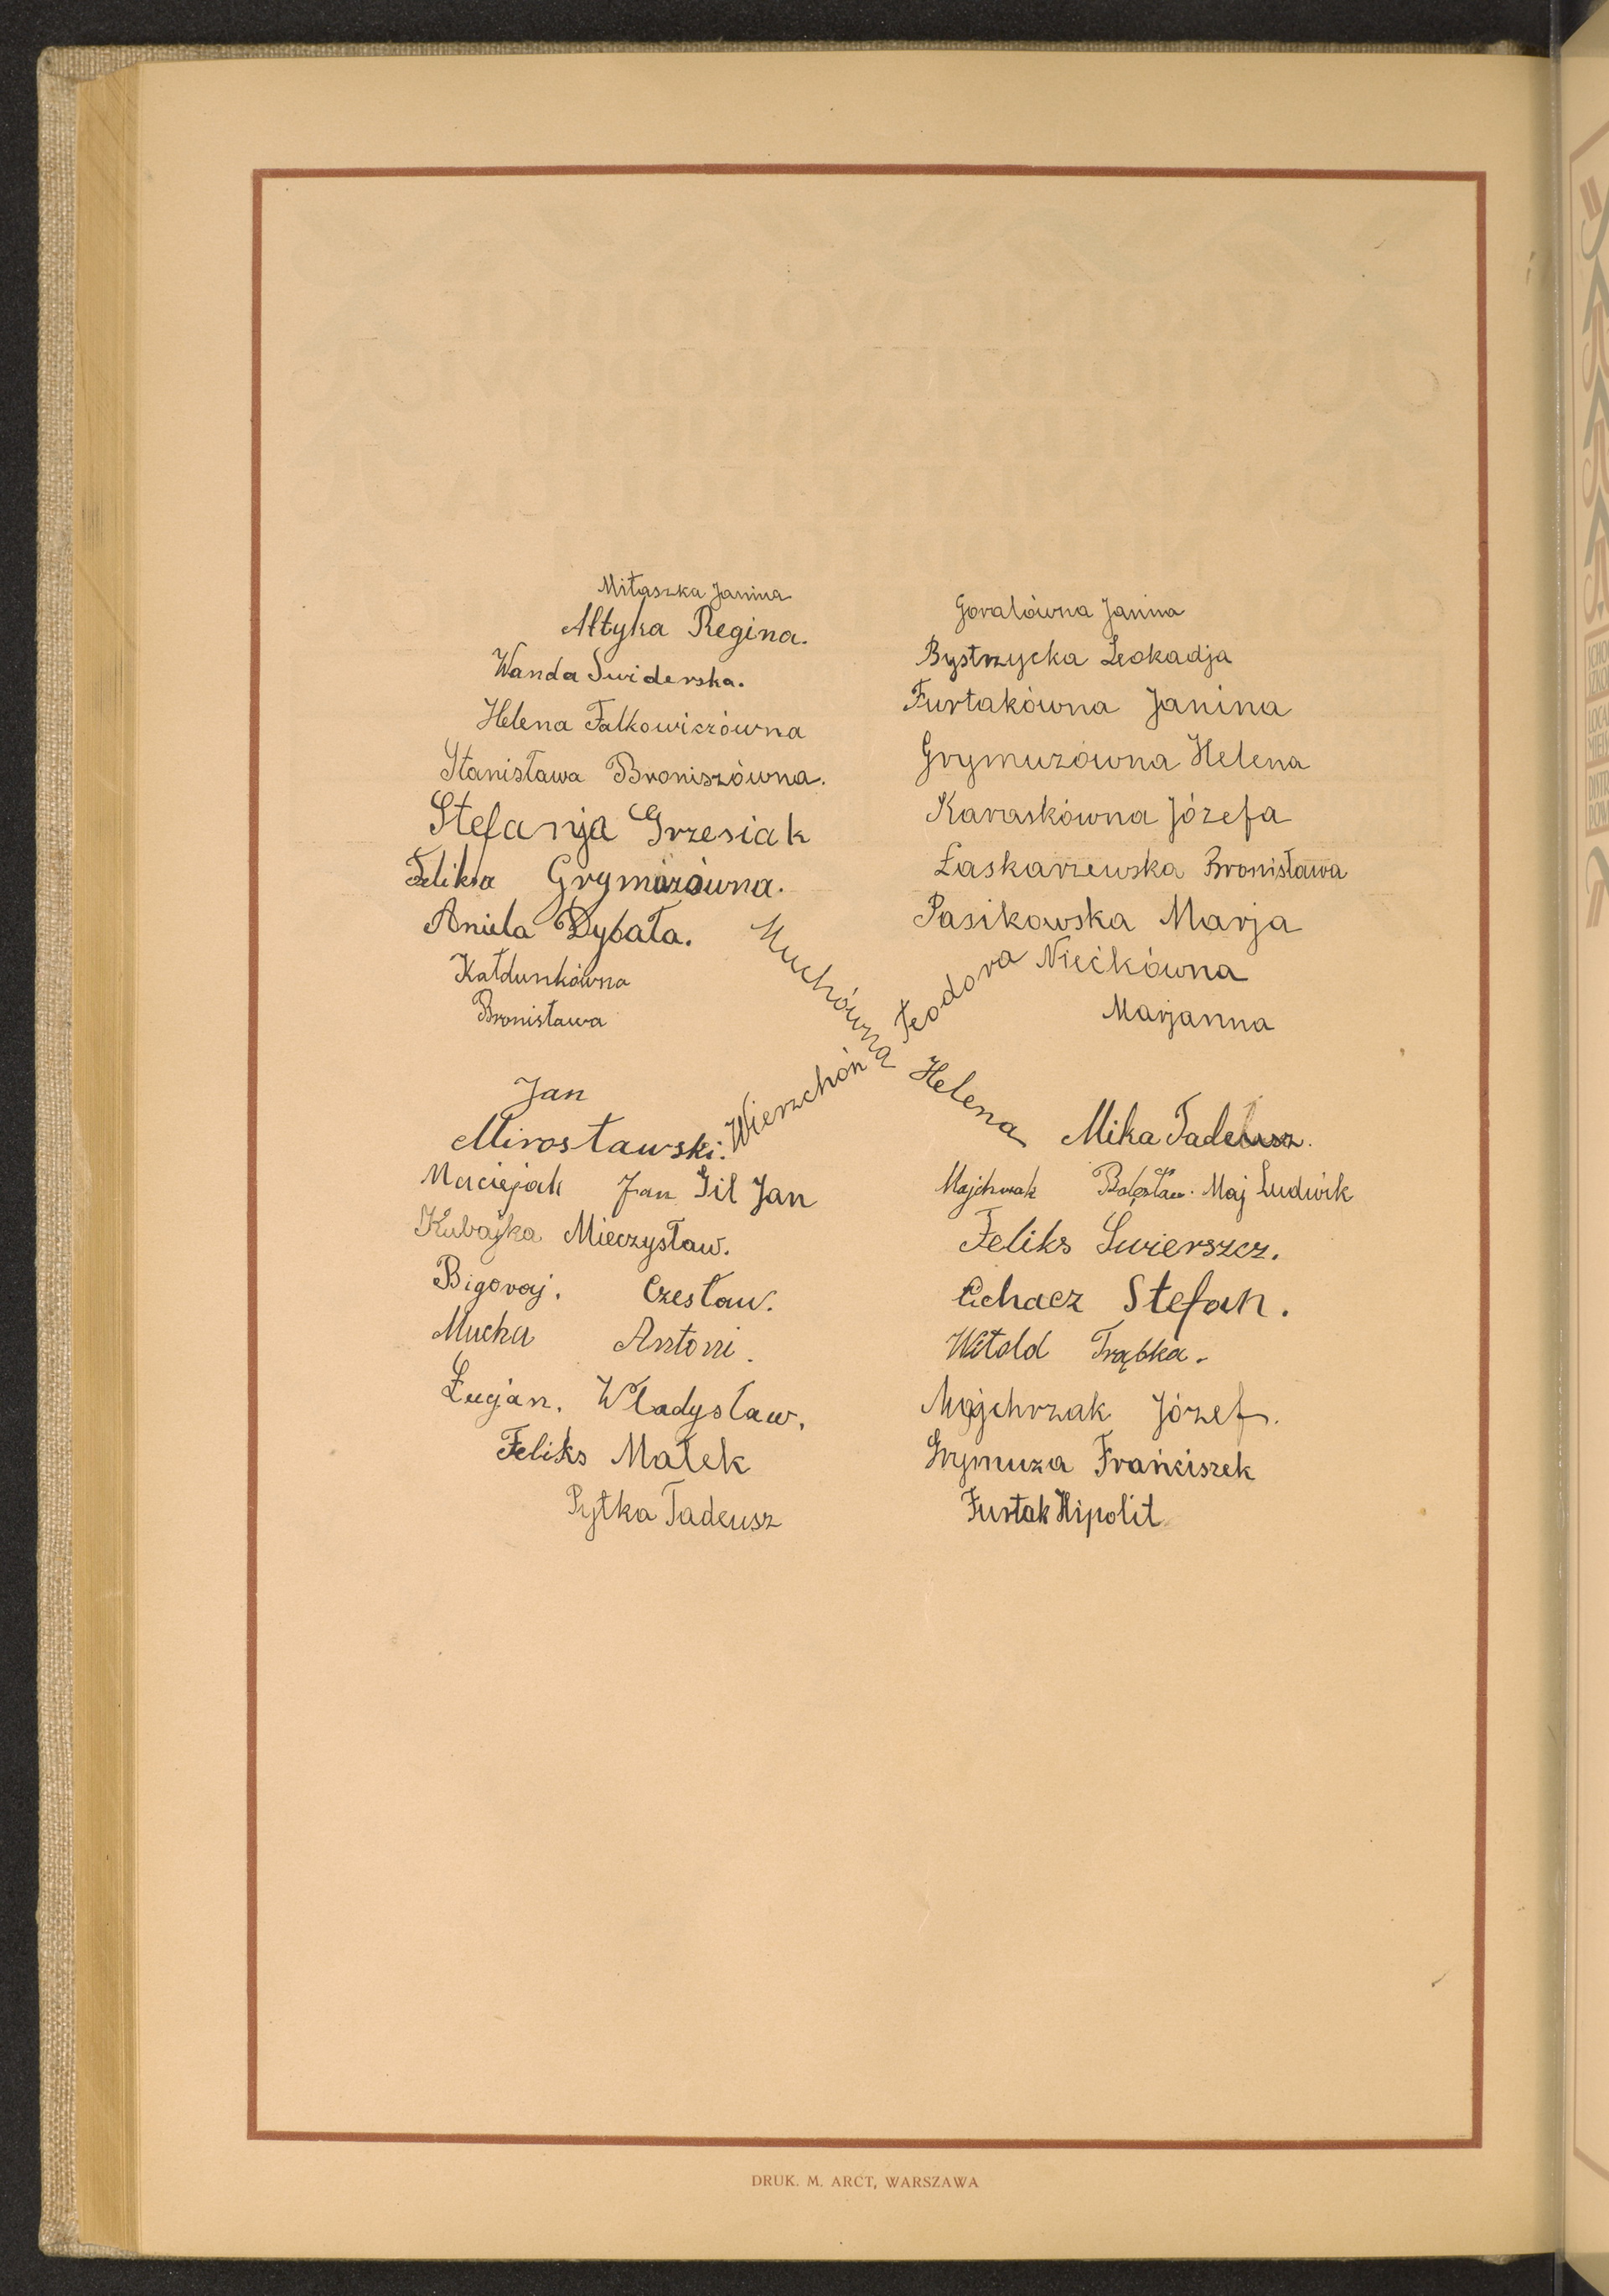 Miłaszka Janina
Ałtyka Regina.
Wanda Swiderska.
Helena Falkowiczówna
Stanisława Broniszówna.
Stefanja Grzesiak
Feliksa Grymuzówna.
Aniela Dybała.
Kałdunkówna
Bronisława
Goralówna Janina
Bystrzycka Leokadja
Furtakówna Janina
Grymuzówna Helena
Karaskówna Józefa
Łaskarzewska Bronisława
Pasikowska Marja
Niećkówna
Marjanna
Muchówna Helena
Wierzchoń Teodora
Jan
Mirosławski.
Maciejak Jan Gil Jan
Kubajka Mieczysław.
Bigoraj. Czesław.
Mucha Antoni.
Łucjan. Władysław.
Feliks Małek
Pytka Tadeusz
Mika Tadeusz.
Majchrzak Bolesław. Maj Ludwik
Feliks Swierszcz.
Cichacz Stefan.
Witold Trąbka.
Majchrzak Józef.
Grymuza Franciszek
Furtak Hipolit
DRUK. M. ARCT, WARSZAWA